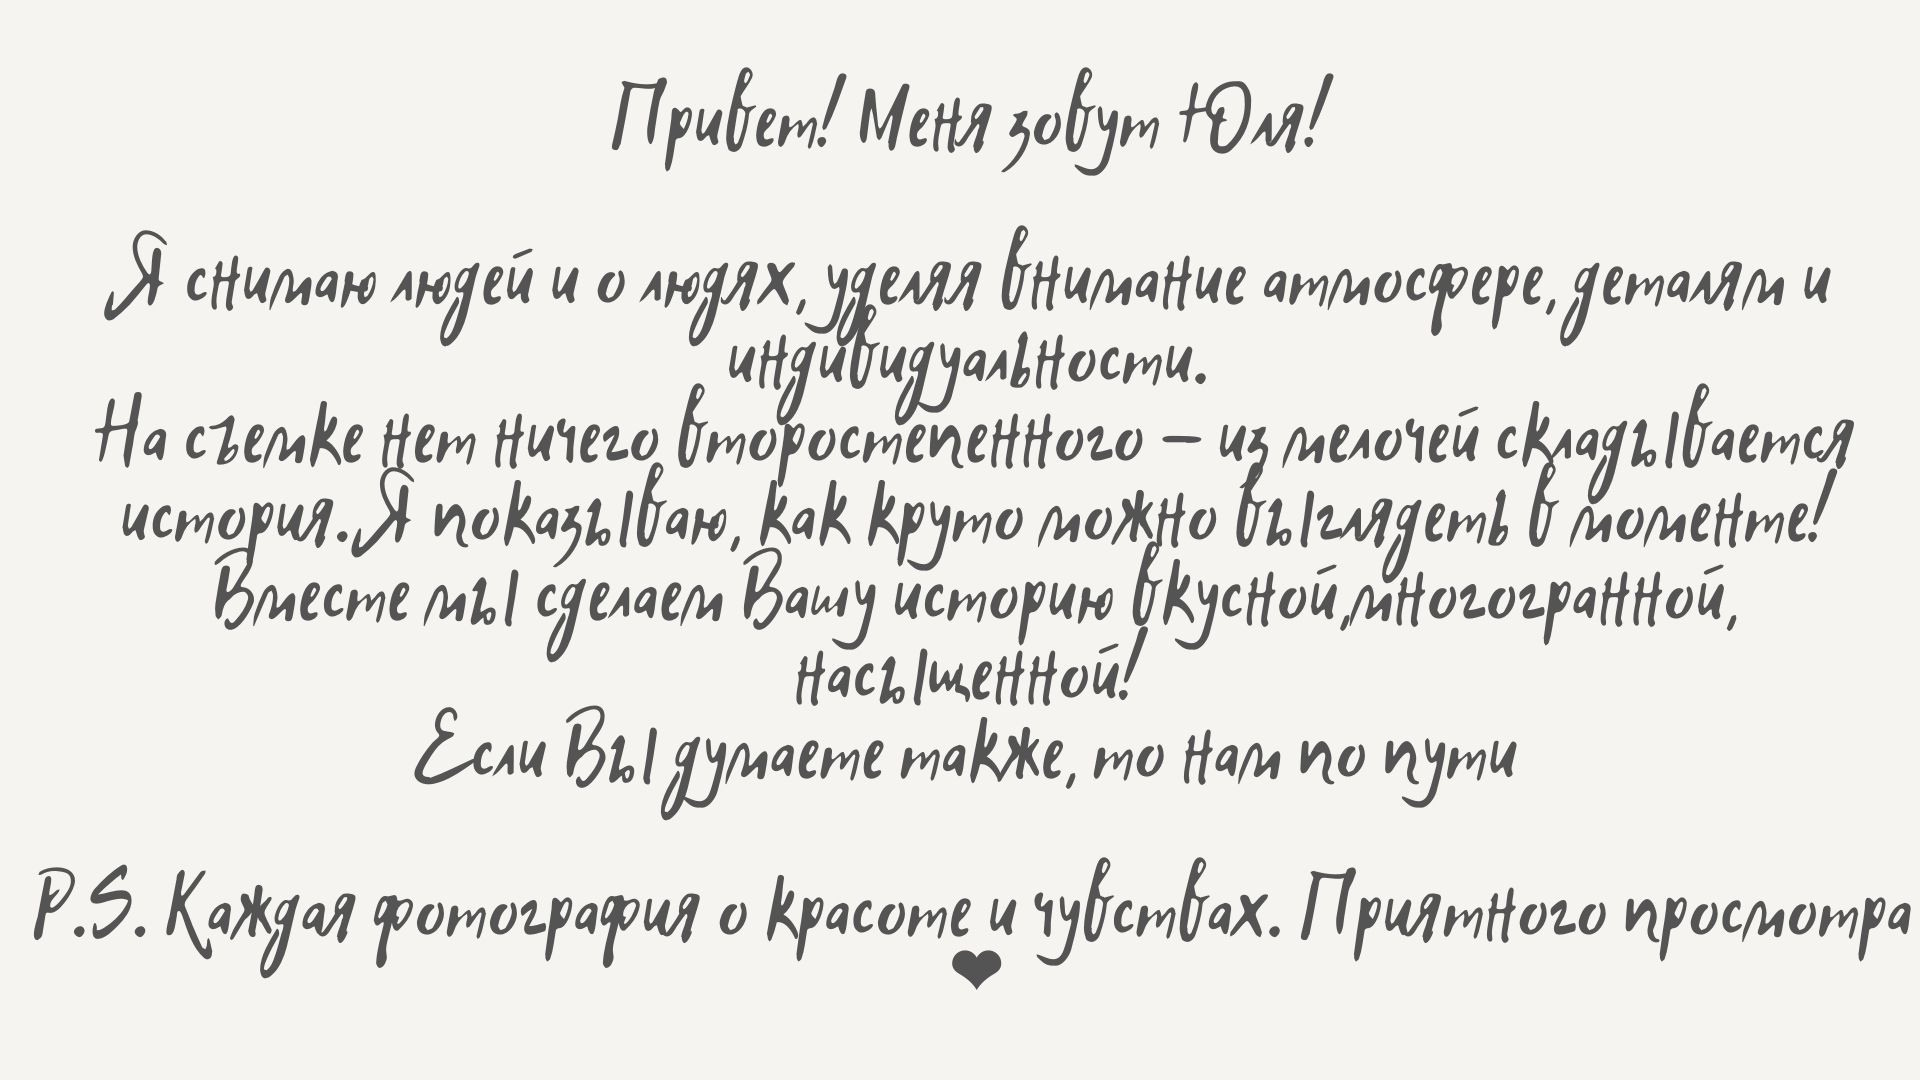 Привет! Меня зовут Юля!
Я снимаю людей и о людях, уделяя внимание атмосфере, деталям и
индивидуальности.
На съемке нет ничего второстепенного – из мелочей складывается
история. Я показываю, как круто можно выглядеть в моменте!
Вместе мы сделаем Вашу историю вкусной,многогранной,
насыщенной!
Если Вы думаете также, то нам по пути
P.S. Каждая фотография о красоте и чувствах. Приятного просмотра
❤